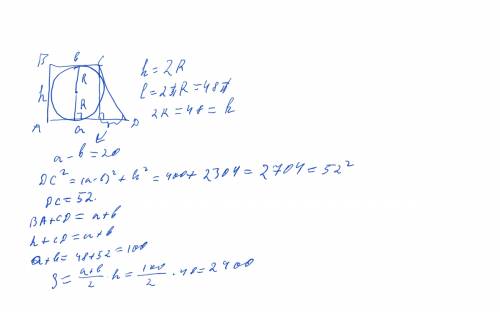 B b C
h R R
A a D
h = 2R
l = 2πR = 48π
2R = 48 = h
a - b = 20
DC² = (a-b)² + h² = 400 + 2304 = 2704 = 52²
DC = 52.
BA + CD = a + b
h + CD = a + b
a + b = 48 + 52 = 100
S = (a+b)/2 · h = 100/2 · 48 = 2400